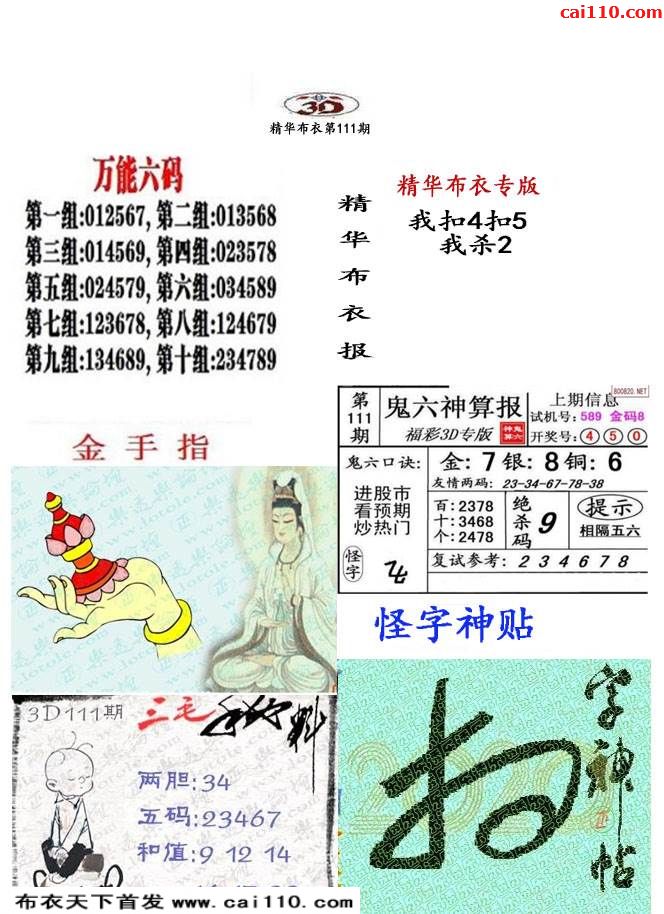 cai110.com
3D
精华布衣第111期
万能六码
第一组:012567, 第二组:013568
第三组:014569, 第四组:023578
第五组:024579, 第六组:034589
第七组:123678, 第八组:124679
第九组:134689, 第十组:234789
精华布衣报
精华布衣专版
我扣4扣5
我杀2
金手指
800820.NET
第111期
鬼六神算报
福彩3D专版
上期信息
试机号: 589 金码8
开奖号: 4 5 0
鬼六口诀:
进股市
看预期
炒热门
怪字
金: 7 银: 8 铜: 6
友情两码: 23-34-67-78-38
百: 2378
十: 3468
个: 2478
绝杀码 9
提示
相隔五六
复试参考: 2 3 4 6 7 8
怪字神贴
字神帖
3D111期
三毛
料
两胆:34
五码:23467
和值:9 12 14
布衣天下首发 www.cai110.com